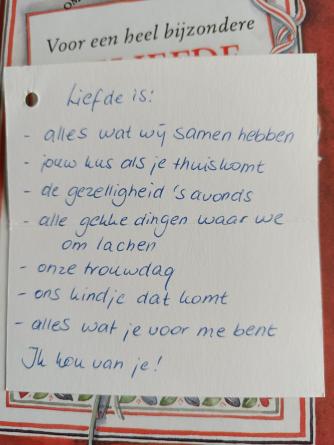 Voor een heel bijzondere
LIEFDE
Liefde is:
- alles wat wij samen hebben
- jouw kus als je thuiskomt
- de gezelligheid 's avonds
- alle gekke dingen waar we
om lachen
- onze trouwdag
- ons kindje dat komt
- alles wat je voor me bent
Ik hou van je!